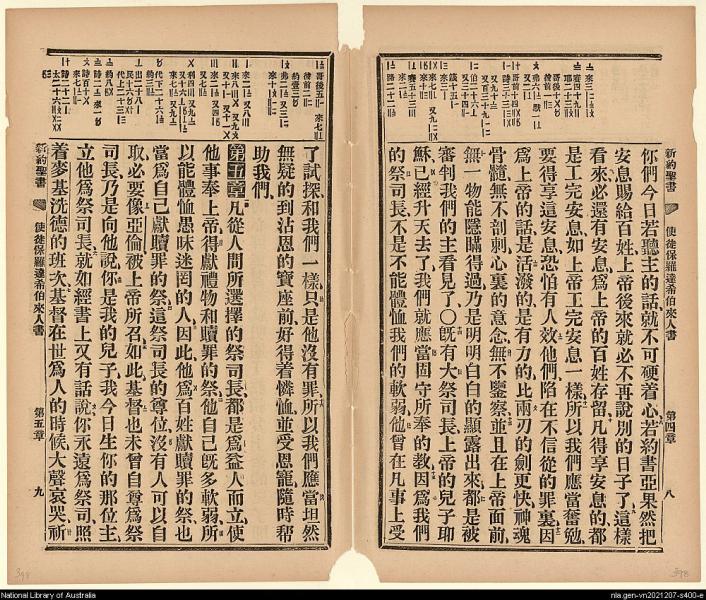 新約聖書
使徒保羅達希伯來人書
第四章
八
你們今日若聽主的話就不可硬着心若約書亞果然把
安息賜給百姓上帝後來就必不再說別的日子了這樣
看來必還有安息爲上帝的百姓存留凡得享安息的都
是工完安息如上帝工完安息一樣所以我們應當奮勉
要得享這安息恐怕有人效他們陷在不信從的罪裏因
爲上帝的話是活潑的是有力的比兩刃的劍更快神魂
骨髓無不剖刺心裏的意念無不鑒察並且在上帝面前
無一物能隱瞞得過乃是明明白白的顯露出來都是被
審判我們的主看見了〇旣有大祭司長上帝的兒子耶
穌已經升天去了我們就應當固守所奉的教因爲我們
的祭司長不是不能體恤我們的軟弱他曾在凡事上受
了試探和我們一樣只是他沒有罪所以我們應當坦然
無疑的到沾恩的寶座前好得着憐恤並受恩寵隨時帮
助我們
第五章凡從人間所選擇的祭司長都是爲益人而立使
他事奉上帝得獻禮物和贖罪的祭他自己旣多軟弱所
以能體恤愚昧迷罔的人因此他爲百姓獻贖罪的祭也
當爲自己獻贖罪的祭這祭司長的尊位沒有人可以自
取必要像亞倫被上帝所召如此基督也未曾自尊爲祭
司長乃是向他說你是我的兒子我今日生你的那位主
立他爲祭司長就如經書上又有話說你永遠爲祭司照
着麥基洗德的班次基督在世爲人的時候大聲哀哭祈
新約聖書
使徒保羅達希伯來人書
第五章
九
398
398
National Library of Australia
nla.gen-vn2021207-s400-e